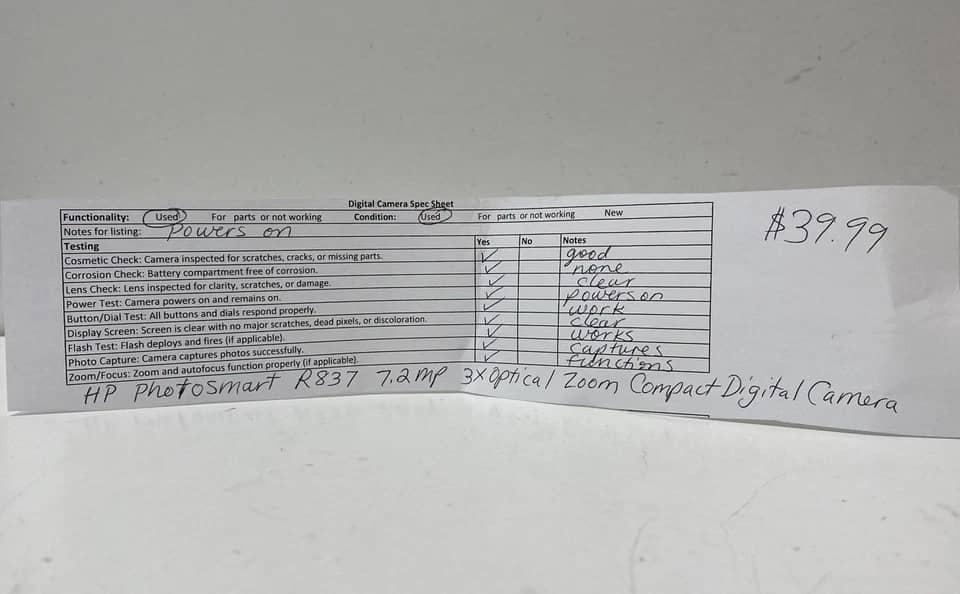 Digital Camera Spec Sheet
Functionality: Used For parts or not working Condition: Used For parts or not working New
Notes for listing: Powers on
Testing Yes No Notes
Cosmetic Check: Camera inspected for scratches, cracks, or missing parts. ✓ good
Corrosion Check: Battery compartment free of corrosion. ✓ none
Lens Check: Lens inspected for clarity, scratches, or damage. ✓ clear
Power Test: Camera powers on and remains on. ✓ powers on
Button/Dial Test: All buttons and dials respond properly. ✓ work
Display Screen: Screen is clear with no major scratches, dead pixels, or discoloration. ✓ clear
Flash Test: Flash deploys and fires (if applicable). ✓ works
Photo Capture: Camera captures photos successfully. ✓ captures
Zoom/Focus: Zoom and autofocus function properly (if applicable). ✓ functions
HP PhotoSmart R837 7.2mp 3x Optical Zoom Compact Digital Camera
$39.99